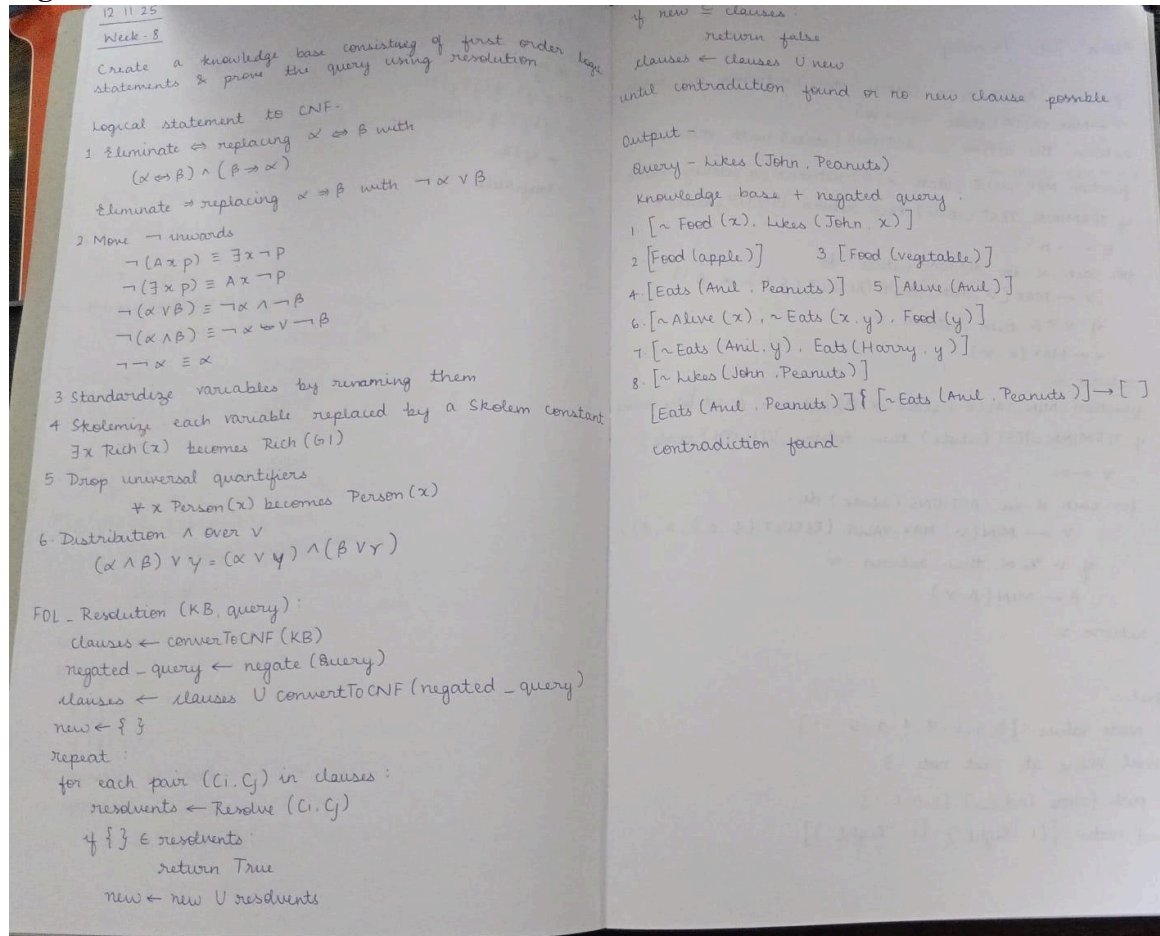 12.11.25
Week - 8
Create a knowledge base consisting of first order logic
statements & prove the query using resolution
Logical statement to CNF.
1 Eliminate ⇔ replacing α ⇔ β with
(α ⇔ β) ∧ (β ⇒ α)
Eliminate ⇒ replacing α ⇒ β with ¬ α ∨ β
2. Move ¬ inwards
¬ (A x p) ≡ ∃ x ¬ p
¬ (∃ x p) ≡ A x ¬ p
¬ (α ∨ β) ≡ ¬ α ∧ ¬ β
¬ (α ∧ β) ≡ ¬ α ∨ ¬ β
¬ ¬ α ≡ α
3 Standardize variables by renaming them
4 Skolemize each variable replaced by a Skolem constant
∃x Rich (x) becomes Rich (G1)
5 Drop universal quantifiers
∀ x Person (x) becomes Person (x)
6. Distribution ∧ over ∨
(α ∧ β) ∨ γ = (α ∨ γ) ∧ (β ∨ γ)
FOL _ Resolution (KB, query) :
clauses ← converToCNF (KB)
negated _ query ← negate (Query)
clauses ← clauses U convertToCNF (negated _ query)
new ← { }
repeat :
for each pair (Ci, Cj) in clauses :
resolvents ← Resolve (Ci, Cj)
if { } ∈ resolvents :
return True
new ← new U resolvents
if new ⊆ clauses :
return false
clauses ← clauses U new
until contradiction found or no new clause possible
Output -
Query - Likes (John, Peanuts)
Knowledge base + negated query :
1. [~ Food (x), Likes (John, x)]
2 [Food (apple)] 3. [Food (vegetable)]
4. [Eats (Anil, Peanuts)] 5 [Alive (Anil)]
6. [~Alive (x), ~Eats (x, y), Food (y)]
7. [~Eats (Anil, y), Eats (Harry, y)]
8. [~ Likes (John, Peanuts)]
[Eats (Anil, Peanuts)] { [~Eats (Anil, Peanuts)] → [ ]
contradiction found